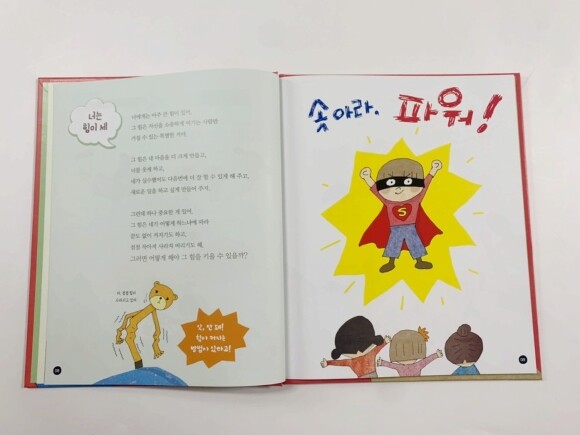 너는
힘이 세
너에게는 아주 큰 힘이 있어.
그 힘은 자신을 소중하게 여기는 사람만
가질 수 있는 특별한 거야.
그 힘은 네 마음을 더 크게 만들고,
너를 웃게 하고,
네가 실수했어도 다음번에 더 잘 할 수 있게 해 주고,
새로운 일을 하고 싶게 만들어 주지.
그런데 하나 중요한 게 있어.
그 힘은 네가 어떻게 하느냐에 따라
끝도 없이 커지기도 하고,
점점 작아져 사라져 버리기도 해.
그러면 어떻게 해야 그 힘을 키울 수 있을까?
안 돼!
힘이 빠지는
방법이 있다고!
솟아라, 파워!
S